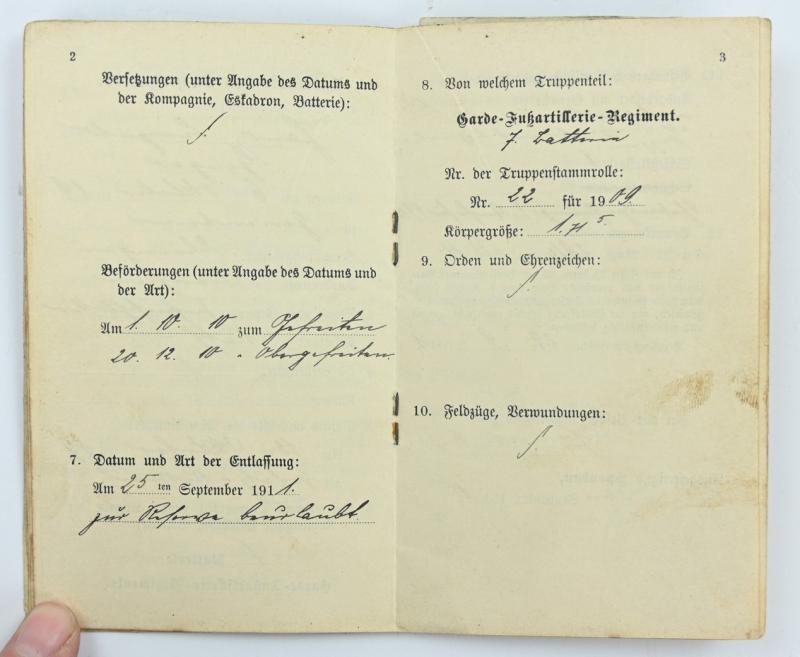 2
Versetzungen (unter Angabe des Datums und
der Kompagnie, Eskadron, Batterie):
Beförderungen (unter Angabe des Datums und
der Art):
Am 1. 10. 10 zum Gefreiten
20. 12. 10 " Obergefreiten.
7. Datum und Art der Entlassung:
Am 25 ten September 1911.
zur Reserve beurlaubt.
3
8. Von welchem Truppenteil:
Garde-Fußartillerie-Regiment.
7. Batterie
Nr. der Truppenstammrolle:
Nr. 22 für 1909.
Körpergröße: 1.71 5.
9. Orden und Ehrenzeichen:
10. Feldzüge, Verwundungen: